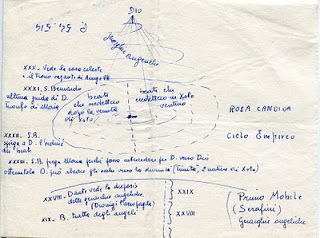 P. 54, 514
DIO
gerarchie angeliche
XXX - Vede la rosa celeste
e il trono vuoto di Arrigo VII
XXXI, S. Bernardo
ultima guida di D.
trionfo di Maria
beati
che credettero
dopo la venuta
di Xsto
beati che
credettero in Xsto
venturo
ROSA CANDIDA
Cielo Empireo
XXXII. S.B.
spiega a D. l'ordine
dei beati
XXXIII. S.B. prega Maria perché possa intercedere per D. verso Dio
D. può alzare gli occhi verso la (Trinità, 2 nature di Xsto)
XXVIII - Dante vede la disposiz.
delle gerarchie angeliche
(Dionigi Areopagita)
XIX - B. tratta degli angeli
XXIX
XXVIII
Primo Mobile
(Serafini)
Gerarchie angeliche